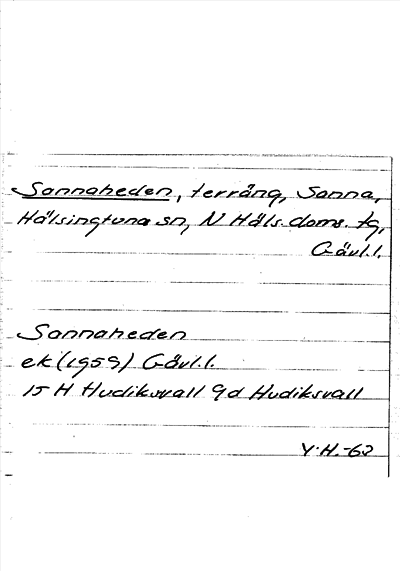 Sannaheden, terräng, Sanna,
Hälsingtuna sn, N Häls. doms. tg,
Gävl.l.
Sannaheden
ek (1959) Gävl.l.
15 H Hudiksvall 9d Hudiksvall
Y.H.-62